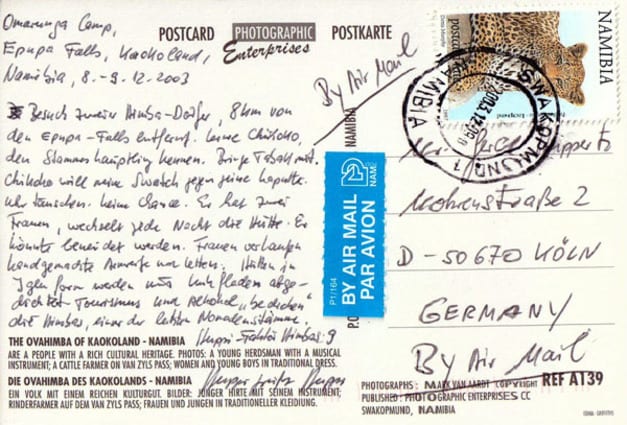 Omarunga Camp,
Epupa Falls, Kaokoland,
Namibia, 8.-9.12.2003
Besuch zweier Himba-Dörfer, 8 km von
den Epupa-Falls entfernt. Lerne Chikoho,
den Stammeshäuptling kennen. Bringe Tabak mit.
Chikoho will meine Swatch gegen seine kaputte
Uhr tauschen. Keine Chance. Er hat zwei
Frauen, wechselt jede Nacht die Hütte. Er
könnte beneidet werden. Frauen verkaufen
handgemachte Armreife und Ketten. Hütten in
Iglu form werden mit Kuhfladen abge-
dichtet. Tourismus und Alkohol "bedrohen"
die Himbas, einer der letzten Nomadenstämme.
THE OVAHIMBA OF KAOKOLAND - NAMIBIA
ARE A PEOPLE WITH A RICH CULTURAL HERITAGE. PHOTOS: A YOUNG HERDSMAN WITH A MUSICAL
INSTRUMENT; A CATTLE FARMER ON VAN ZYLS PASS; WOMEN AND YOUNG BOYS IN TRADITIONAL DRESS.
DIE OVAHIMBA DES KAOKOLANDS - NAMIBIA
EIN VOLK MIT EINEM REICHEN KULTURGUT. BILDER: JUNGER HIRTE MIT SEINEM INSTRUMENT;
RINDERFARMER AUF DEM VAN ZYLS PASS; FRAUEN UND JUNGEN IN TRADITIONELLER KLEIDUNG.
POSTCARD PHOTOGRAPHIC POSTKARTE
Enterprises
By Air Mail
NAMIBIA
NAMIBIA
SWAKOPMUND 1
NAMIBIA
2003.12.19
BY AIR MAIL
PAR AVION
P1/164
Mohrenstraße 2
D-50670 KÖLN
GERMANY
By Air Mail
PHOTOGRAPHS: MARK VAN AARDT COPYRIGHT
PUBLISHED: PHOTOGRAPHIC ENTERPRISES CC
SWAKOPMUND, NAMIBIA
REF A139